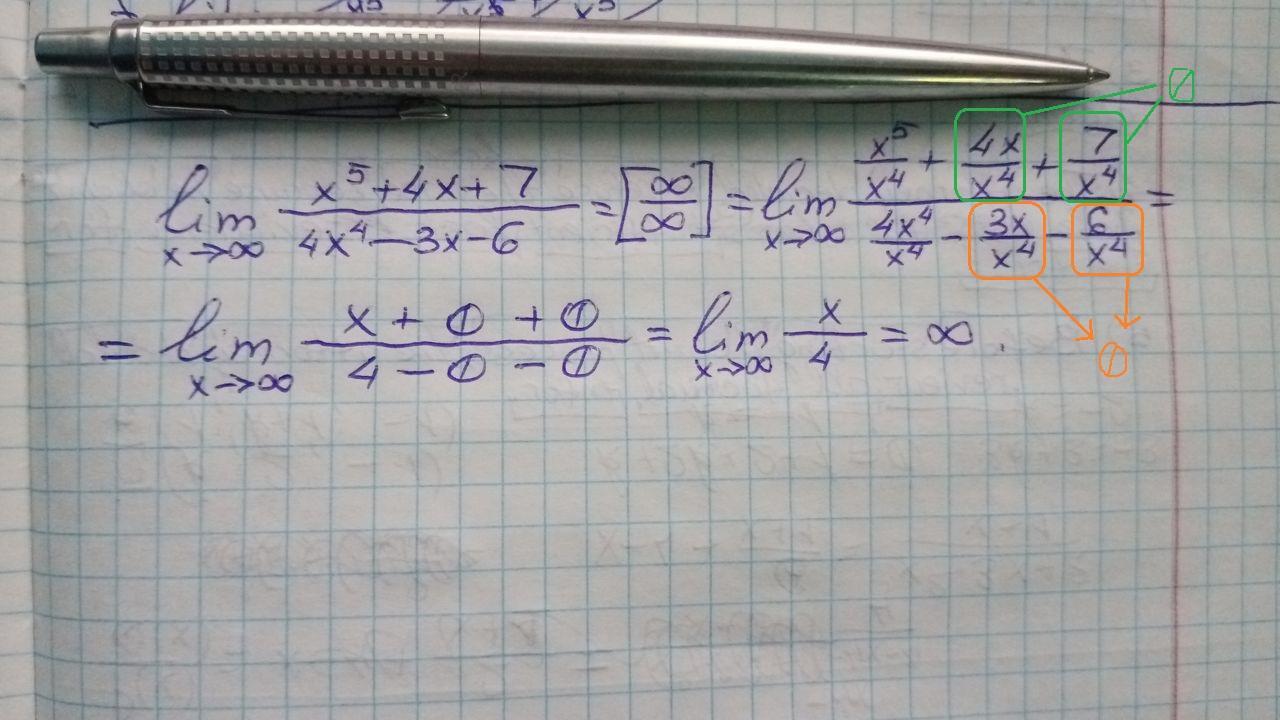 lim x→∞ (x⁵+4x+7)/(4x⁴−3x−6) = [∞/∞] = lim x→∞ (x⁵/x⁴ + 4x/x⁴ + 7/x⁴)/(4x⁴/x⁴ − 3x/x⁴ − 6/x⁴) =
0
= lim x→∞ (x + 0 + 0)/(4 − 0 − 0) = lim x→∞ x/4 = ∞.
0